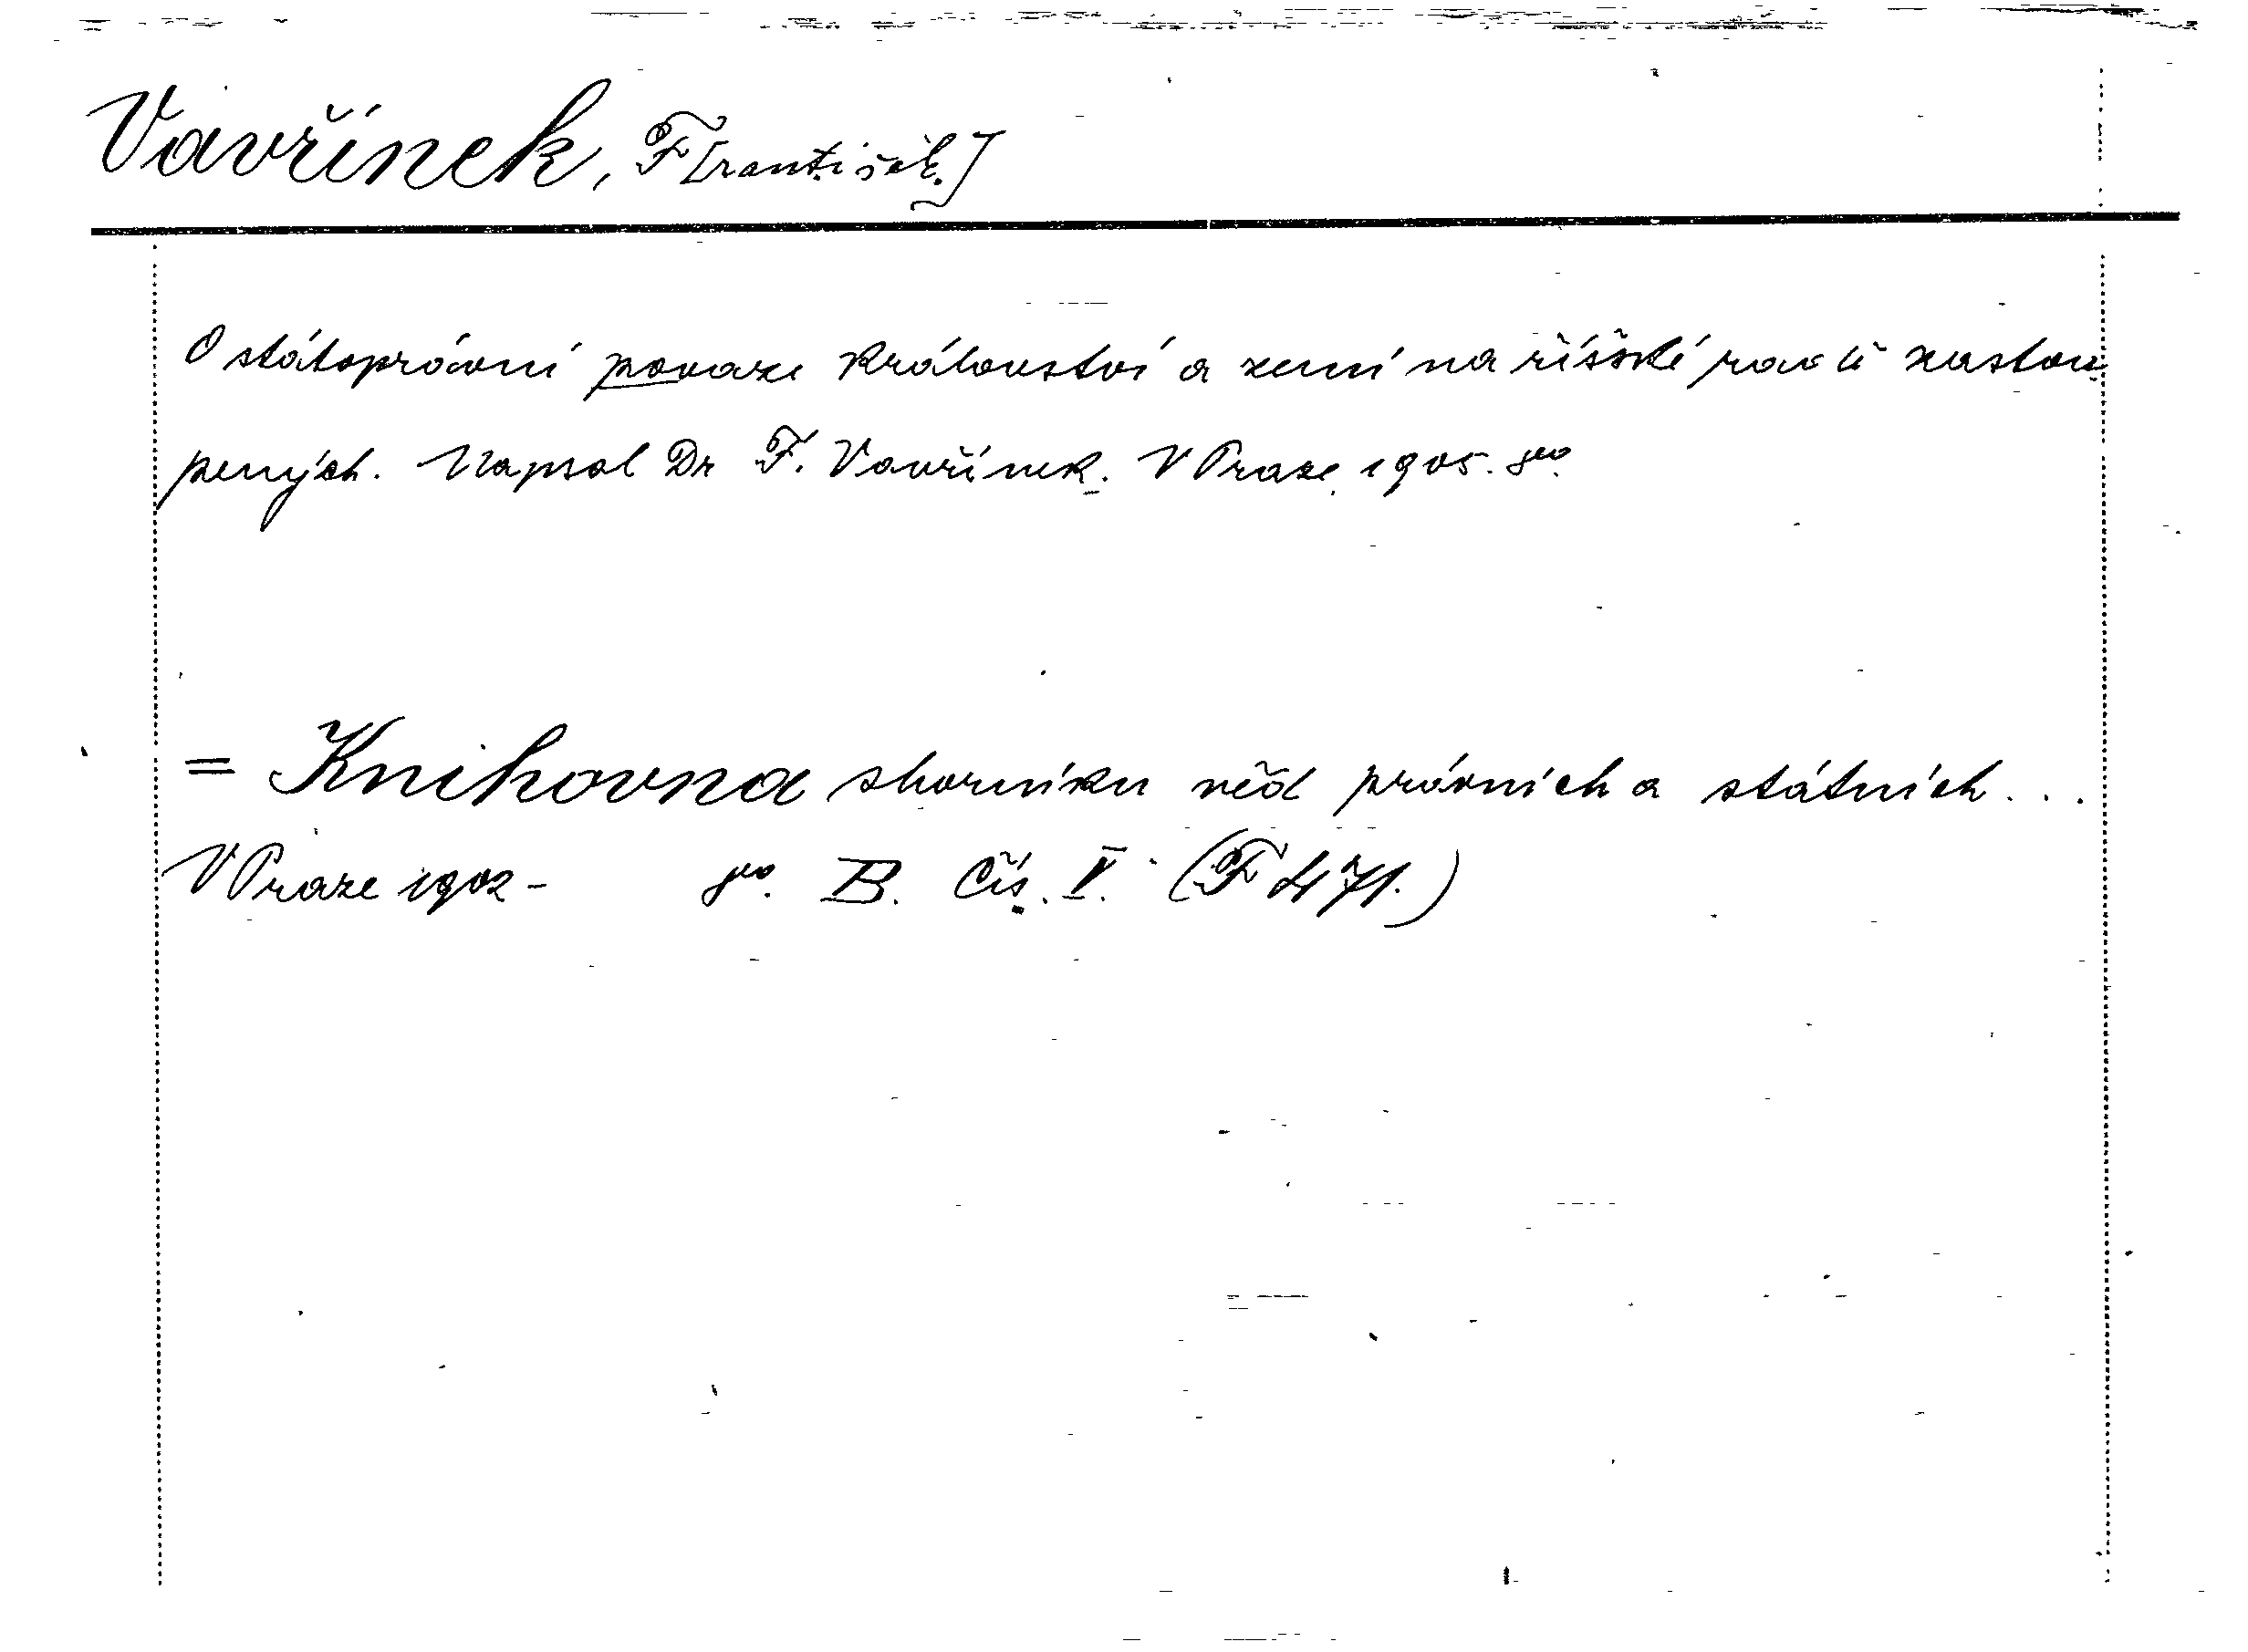 Vavřínek, F[rantišek.]
O státoprávní povaze království a zemí na říšské radě zastou-
pených. Napsal Dr F. Vavřínek. V Praze 1905. 8vo.
= Knihovna sborníku věd právních a státních...
V Praze 1902 - 8vo. B. Čís. V. (F 471.)